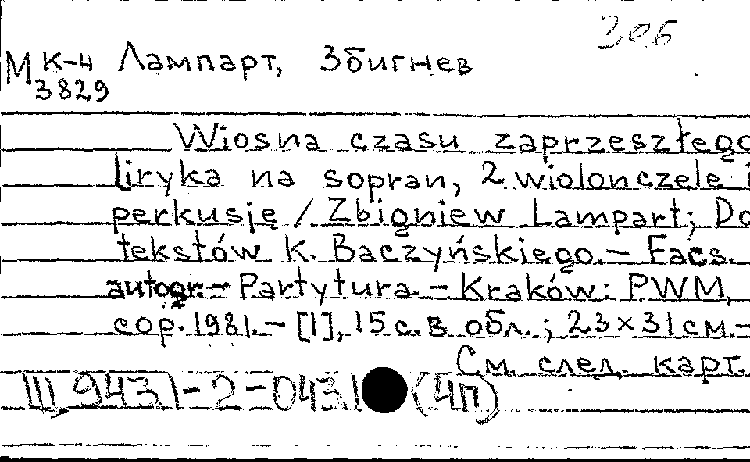 306
МК-4 Лампарт, Збигнев
3829
Wiosna czasu zaprzeszłego
Liryka na sopran, 2 wiolonczele i
perkusję / Zbigniew Lampart; Do
tekstów K. Baczyńskiego. – Facs.
autogr. – Partytura. – Kraków: PWM,
cop. 1981. – [1], 15 с. в обл.; 23×31 см. –
См. след. карт.
Ш 943.1-2-043.1 (4П)